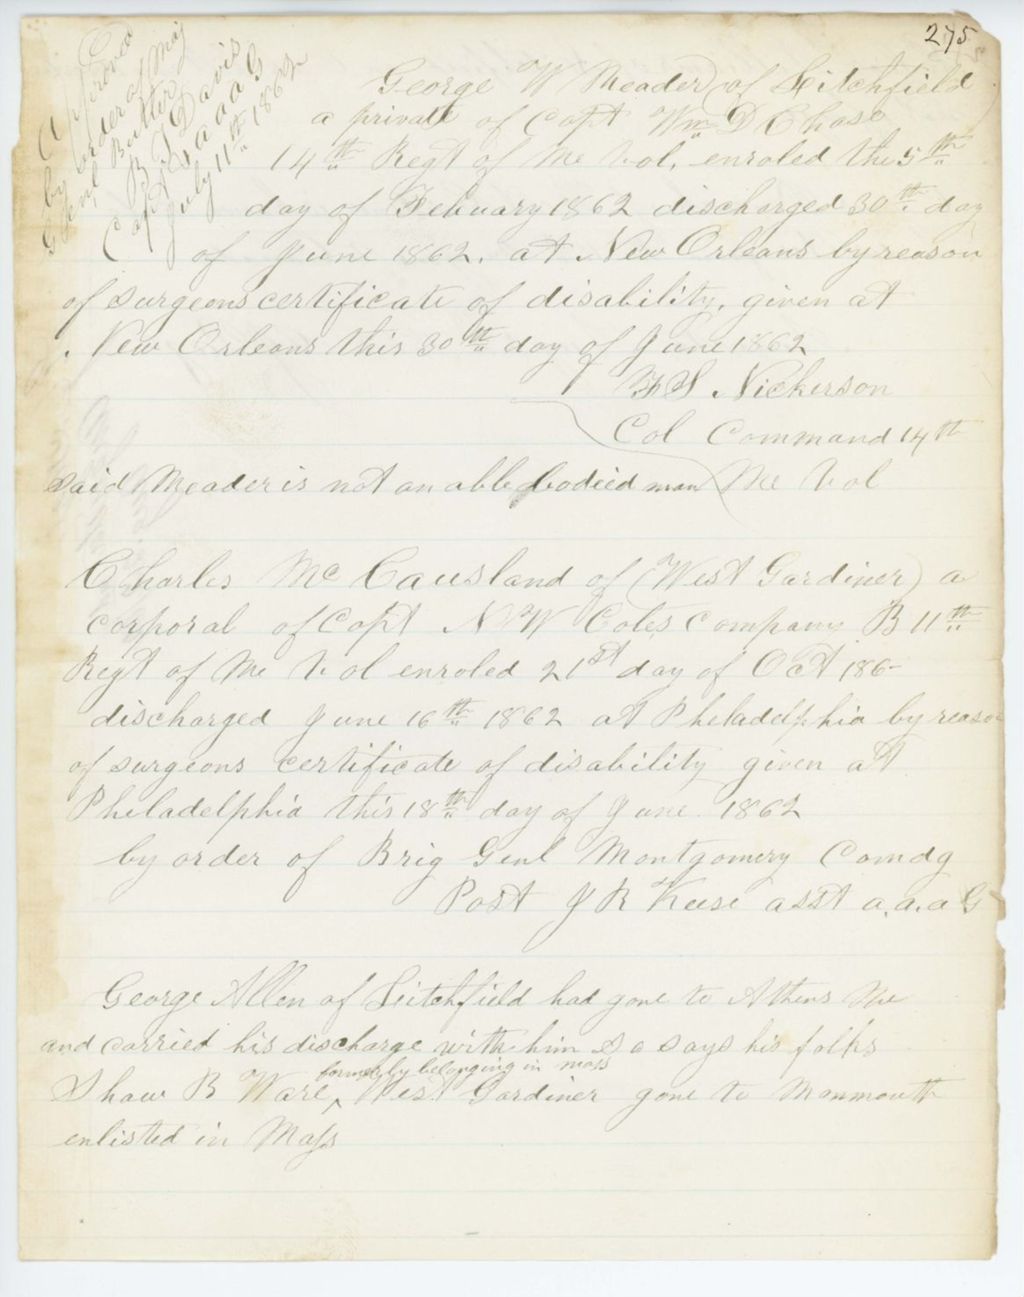 275
Approved
by order of Maj
Genl Butler
R S Davis
Capt & a a a G
July 11th 1862
George W Meader (of Litchfield)
a private of Capt Wm D Chase
14th Regt of Me Vol, enroled the 5th
day of Febuary 1862 discharged 30th day
of June 1862. at New Orleans by reason
of surgeons certificate of disability, given at
New Orleans this 30th day of June 1862
F S Nickerson
Col Command 14th
Me Vol
said Meader is not an able bodied man
Charles Mc Causland of (West Gardiner) a
corporal of Capt N W Coles Company B 11th
Regt of Me Vol enroled 21st day of Oct 186-
discharged June 16th 1862 at Pheladelphia by reason
of surgeons certificate of disability given at
Philadelphia this 18th day of June 1862
by order of Brig Genl Montgomery Comdg
Post J R Keese asst a.a.a G
George Allen of Litchfield had gone to Athens Me
and carried his discharge with him So says his folks
formerly belonging in mass
Shaw B Ware ^ West Gardiner gone to Monmouth
enlisted in Mass